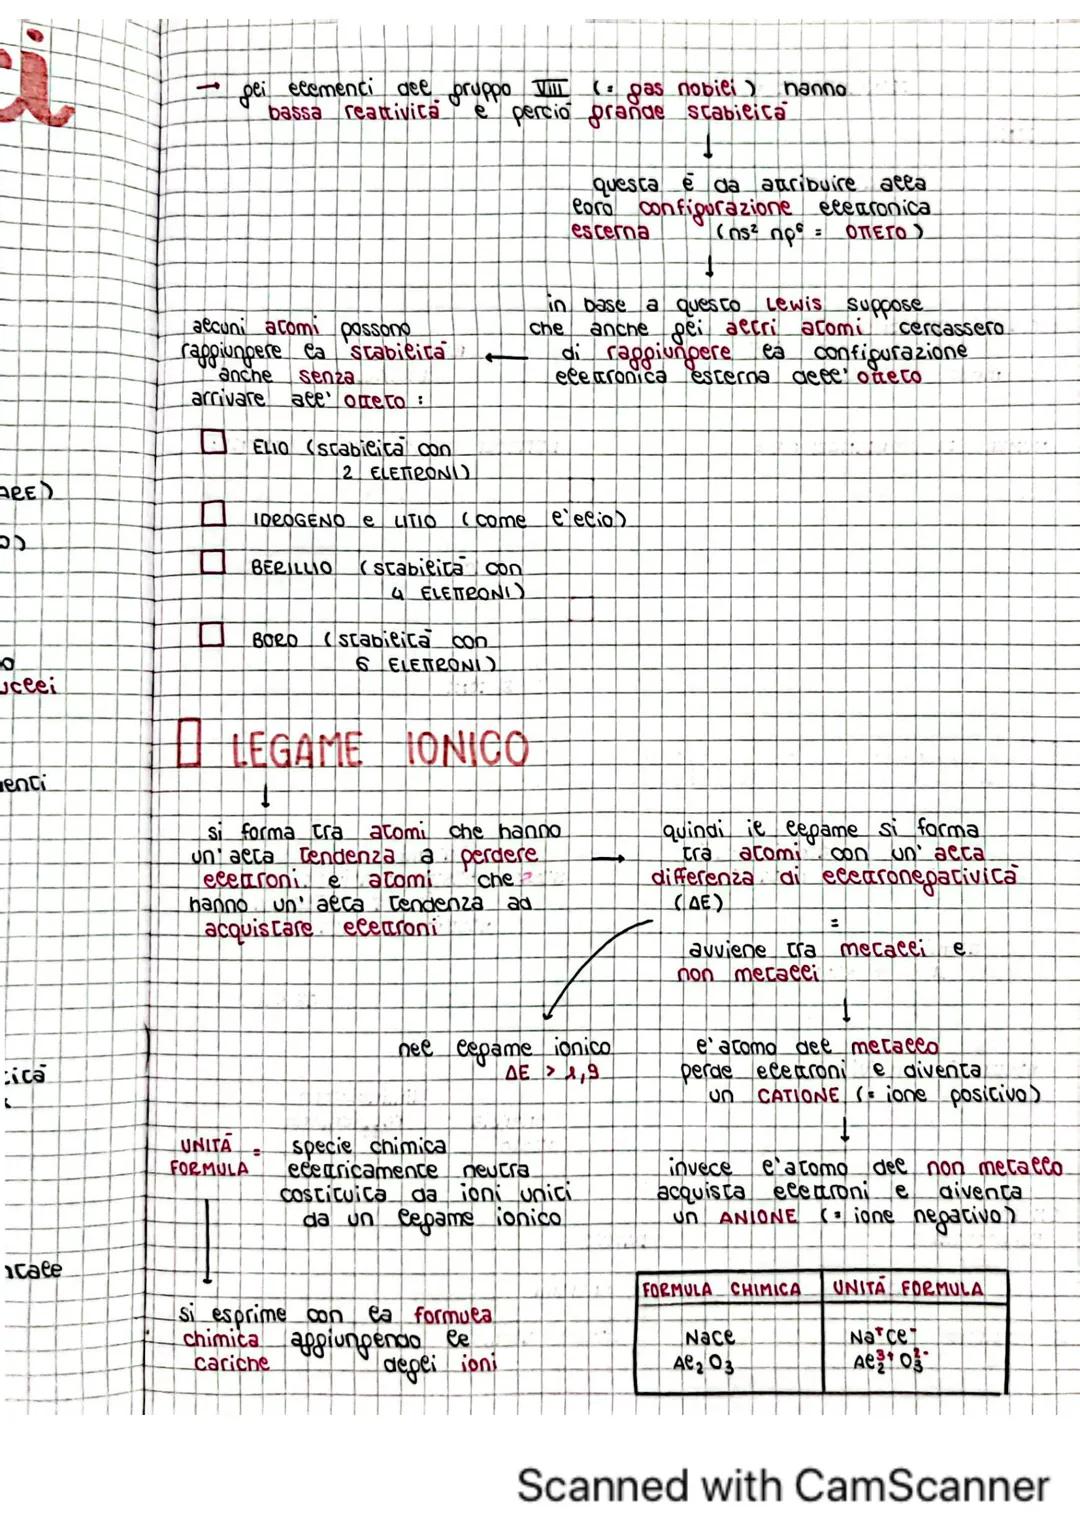 ci
→ gli elementi del gruppo VIII (= gas nobili) hanno
bassa reattività e perciò grande stabilità
↓
questa è da attribuire alla
loro configurazione elettronica
esterna (ns² np⁶ = OTTETO)
↓
in base a questo Lewis suppose
che anche gli altri atomi cercassero
di raggiungere la configurazione
elettronica esterna dell'otteto
←
alcuni atomi possono
raggiungere la stabilità
anche senza
arrivare all'otteto :
ELIO (stabilità con
2 ELETTRONI)
IDROGENO e LITIO (come l'elio)
BERILLIO (stabilità con
4 ELETTRONI)
BORO (stabilità con
6 ELETTRONI)
LEGAME IONICO
↓
si forma tra atomi che hanno
un'alta tendenza a perdere
elettroni e atomi che
hanno un'alta tendenza ad
acquistare elettroni
→
quindi il legame si forma
tra atomi con un'alta
differenza di elettronegatività
(ΔE)
=
avviene tra metalli e
non metalli
nel legame ionico
ΔE > 1,9
↓
l'atomo del metallo
perde elettroni e diventa
un CATIONE (= ione positivo)
↓
invece l'atomo del non metallo
acquista elettroni e diventa
un ANIONE (= ione negativo)
UNITÀ FORMULA = specie chimica
elettricamente neutra
costituita da ioni uniti
da un legame ionico
↓
si esprime con la formula
chimica aggiungendo le
cariche degli ioni
FORMULA CHIMICA UNITÀ FORMULA
NaCl Na⁺Cl⁻
Al₂O₃ Al₂³⁺O₃²⁻
Scanned with CamScanner